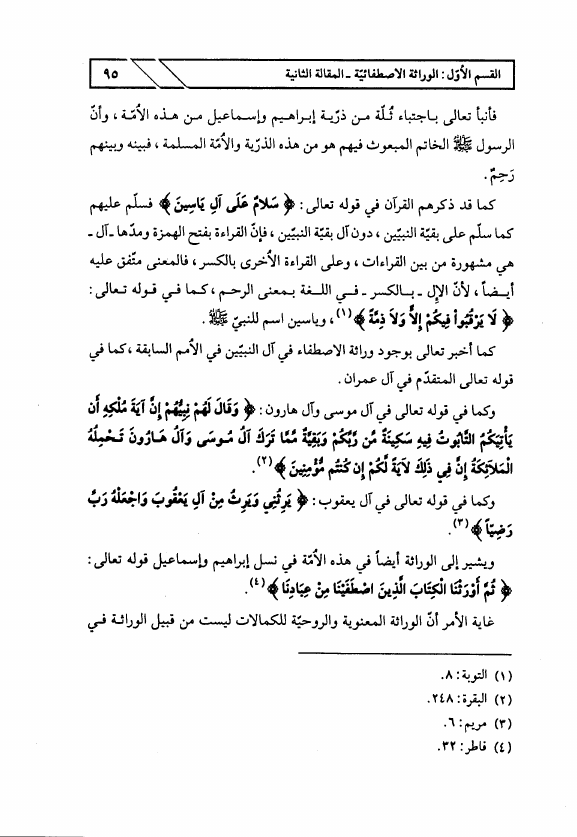 القسم الأوّل: الوراثة الاصطفائيّة ـ المقالة الثانية ٩٥
فأنبأ تعالى باجتباء ثُلّة من ذرّية إبراهيم وإسماعيل من هذه الأُمّة، وأنّ
الرسول ﷺ الخاتم المبعوث فيهم هو من هذه الذرّية والأُمّة المسلمة، فبينه وبينهم
رَحِمٌ.
كما قد ذكرهم القرآن في قوله تعالى: ﴿ سَلامٌ عَلَى آلِ يَاسِينَ ﴾ فسلّم عليهم
كما سلّم على بقيّة النبيّين، دون آل بقيّة النبيّين، فإنّ القراءة بفتح الهمزة ومدّها ـ آل ـ
هي مشهورة من بين القراءات، وعلى القراءة الأُخرى بالكسر، فالمعنى متّفق عليه
أيضاً، لأنّ الإل ـ بالكسر ـ في اللغة بمعنى الرحم، كما في قوله تعالى:
﴿ لَا يَرْقُبُواْ فِيكُمْ إِلاًّ وَلاَ ذِمَّةً ﴾(١)، وياسين اسم للنبيّ ﷺ.
كما أخبر تعالى بوجود وراثة الاصطفاء في آل النبيّين في الأمم السابقة، كما في
قوله تعالى المتقدّم في آل عمران.
وكما في قوله تعالى في آل موسى وآل هارون: ﴿ وَقَالَ لَهُمْ نِبِيُّهُمْ إِنَّ آيَةَ مُلْكِهِ أَن
يَأْتِيَكُمُ التَّابُوتُ فِيهِ سَكِينَةٌ مِّن رَّبِّكُمْ وَبَقِيَّةٌ مِّمَّا تَرَكَ آلُ مُوسَى وَآلُ هَارُونَ تَحْمِلُهُ
الْمَلَائِكَةُ إِنَّ فِي ذَلِكَ لَآيَةً لَّكُمْ إِن كُنتُم مُّؤْمِنِينَ ﴾(٢).
وكما في قوله تعالى في آل يعقوب: ﴿ يَرِثُنِي وَيَرِثُ مِنْ آلِ يَعْقُوبَ وَاجْعَلْهُ رَبِّ
رَضِيّاً ﴾(٣).
ويشير إلى الوراثة أيضاً في هذه الأُمّة في نسل إبراهيم وإسماعيل قوله تعالى:
﴿ ثُمَّ أَوْرَثْنَا الْكِتَابَ الَّذِينَ اصْطَفَيْنَا مِنْ عِبَادِنَا ﴾(٤).
غاية الأمر أنّ الوراثة المعنوية والروحيّة للكمالات ليست من قبيل الوراثة في
(١) التوبة: ٨.
(٢) البقرة: ٢٤٨.
(٣) مريم: ٦.
(٤) فاطر: ٣٢.